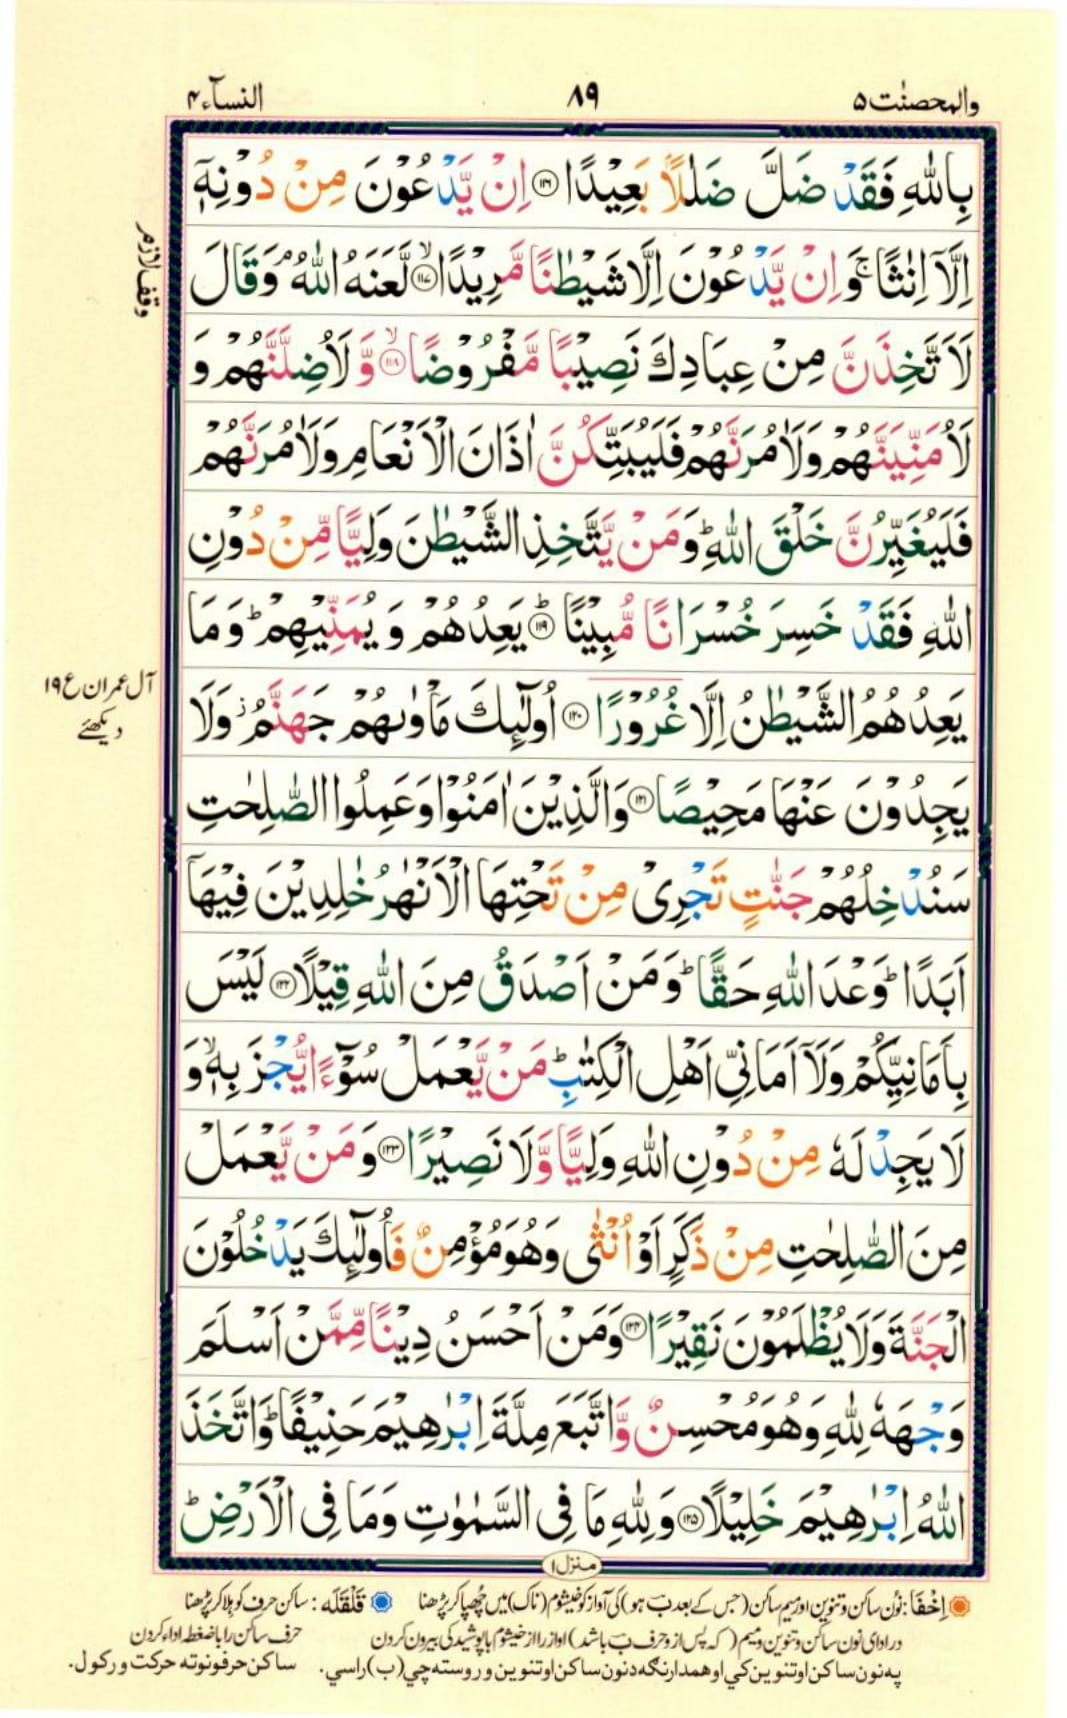 والمحصنٰت ۵
۸۹
النسآء ۴
بِاللّٰهِ فَقَدْ ضَلَّ ضَلٰلًاۢ بَعِيْدًا ۝۱۱۶ اِنْ يَّدْعُوْنَ مِنْ دُوْنِهٖۤ
اِلَّاۤ اِنٰثًا ۚ وَاِنْ يَّدْعُوْنَ اِلَّا شَيْطٰنًا مَّرِيْدًا ۙ۝۱۱۷ لَّعَنَهُ اللّٰهُ ۘ وَقَالَ
لَاَتَّخِذَنَّ مِنْ عِبَادِكَ نَصِيْبًا مَّفْرُوْضًا ۙ۝۱۱۸ وَّ لَاُضِلَّنَّهُمْ وَ
لَاُمَنِّيَنَّهُمْ وَلَاٰمُرَنَّهُمْ فَلَيُبَتِّكُنَّ اٰذَانَ الْاَنْعَامِ وَلَاٰمُرَنَّهُمْ
فَلَيُغَيِّرُنَّ خَلْقَ اللّٰهِ ؕ وَمَنْ يَّتَّخِذِ الشَّيْطٰنَ وَلِيًّا مِّنْ دُوْنِ
اللّٰهِ فَقَدْ خَسِرَ خُسْرَانًا مُّبِيْنًا ؕ۝۱۱۹ يَعِدُهُمْ وَ يُمَنِّيْهِمْ ؕ وَمَا
يَعِدُهُمُ الشَّيْطٰنُ اِلَّا غُرُوْرًا ۝۱۲۰ اُولٰٓئِكَ مَاْوٰىهُمْ جَهَنَّمُ ؗ وَلَا
يَجِدُوْنَ عَنْهَا مَحِيْصًا ۝۱۲۱ وَالَّذِيْنَ اٰمَنُوْا وَعَمِلُوا الصّٰلِحٰتِ
سَنُدْخِلُهُمْ جَنّٰتٍ تَجْرِىْ مِنْ تَحْتِهَا الْاَنْهٰرُ خٰلِدِيْنَ فِيْهَاۤ
اَبَدًا ؕ وَعْدَ اللّٰهِ حَقًّا ؕ وَمَنْ اَصْدَقُ مِنَ اللّٰهِ قِيْلًا ۝۱۲۲ لَيْسَ
بِاَمَانِيِّكُمْ وَلَاۤ اَمَانِىِّ اَهْلِ الْكِتٰبِ ؕ مَنْ يَّعْمَلْ سُوْٓءًا يُّجْزَ بِهٖ ۙ وَ
لَا يَجِدْ لَهٗ مِنْ دُوْنِ اللّٰهِ وَلِيًّا وَّلَا نَصِيْرًا ۝۱۲۳ وَمَنْ يَّعْمَلْ
مِنَ الصّٰلِحٰتِ مِنْ ذَكَرٍ اَوْ اُنْثٰى وَهُوَ مُؤْمِنٌ فَاُولٰٓئِكَ يَدْخُلُوْنَ
الْجَنَّةَ وَلَا يُظْلَمُوْنَ نَقِيْرًا ۝۱۲۴ وَمَنْ اَحْسَنُ دِيْنًا مِّمَّنْ اَسْلَمَ
وَجْهَهٗ لِلّٰهِ وَهُوَ مُحْسِنٌ وَّاتَّبَعَ مِلَّةَ اِبْرٰهِيْمَ حَنِيْفًا ؕ وَاتَّخَذَ
اللّٰهُ اِبْرٰهِيْمَ خَلِيْلًا ۝۱۲۵ وَلِلّٰهِ مَا فِى السَّمٰوٰتِ وَمَا فِى الْاَرْضِ ؕ
وقف لازم
آل عمران ع ۱۹
دیکھئے
منزل ۱
اِخْفَا: نُون ساکن و تنوین اور میم ساکن (جس کے بعد ب ہو) کی آواز کو خیشوم (ناک) میں چُھپا کر پڑھنا
قَلْقَلَه: ساکن حرف کو ہلا کر پڑھنا
در ادای نون ساکن و تنوین و میم (که پس از و حرف ب باشد) آواز را از خیشوم با پوشیدگی بیرون کردن
حرف ساکن را با ضغطه ادا کردن
په نون ساکن او تنوین کي او همدارنګه د نون ساکن او تنوین و روسته چي (ب) راسي.
ساکن حرفونو ته حرکت ورکول.